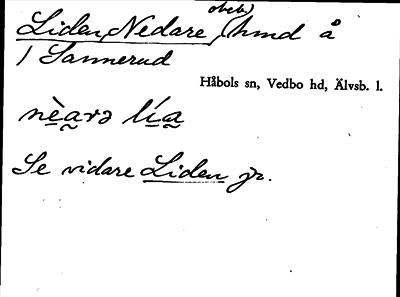 Liden, Nedare (obeb., hmd å
1 Sannerud
Håbols sn, Vedbo hd, Älvsb. l.
nèarə lía
Se vidare Liden gr.